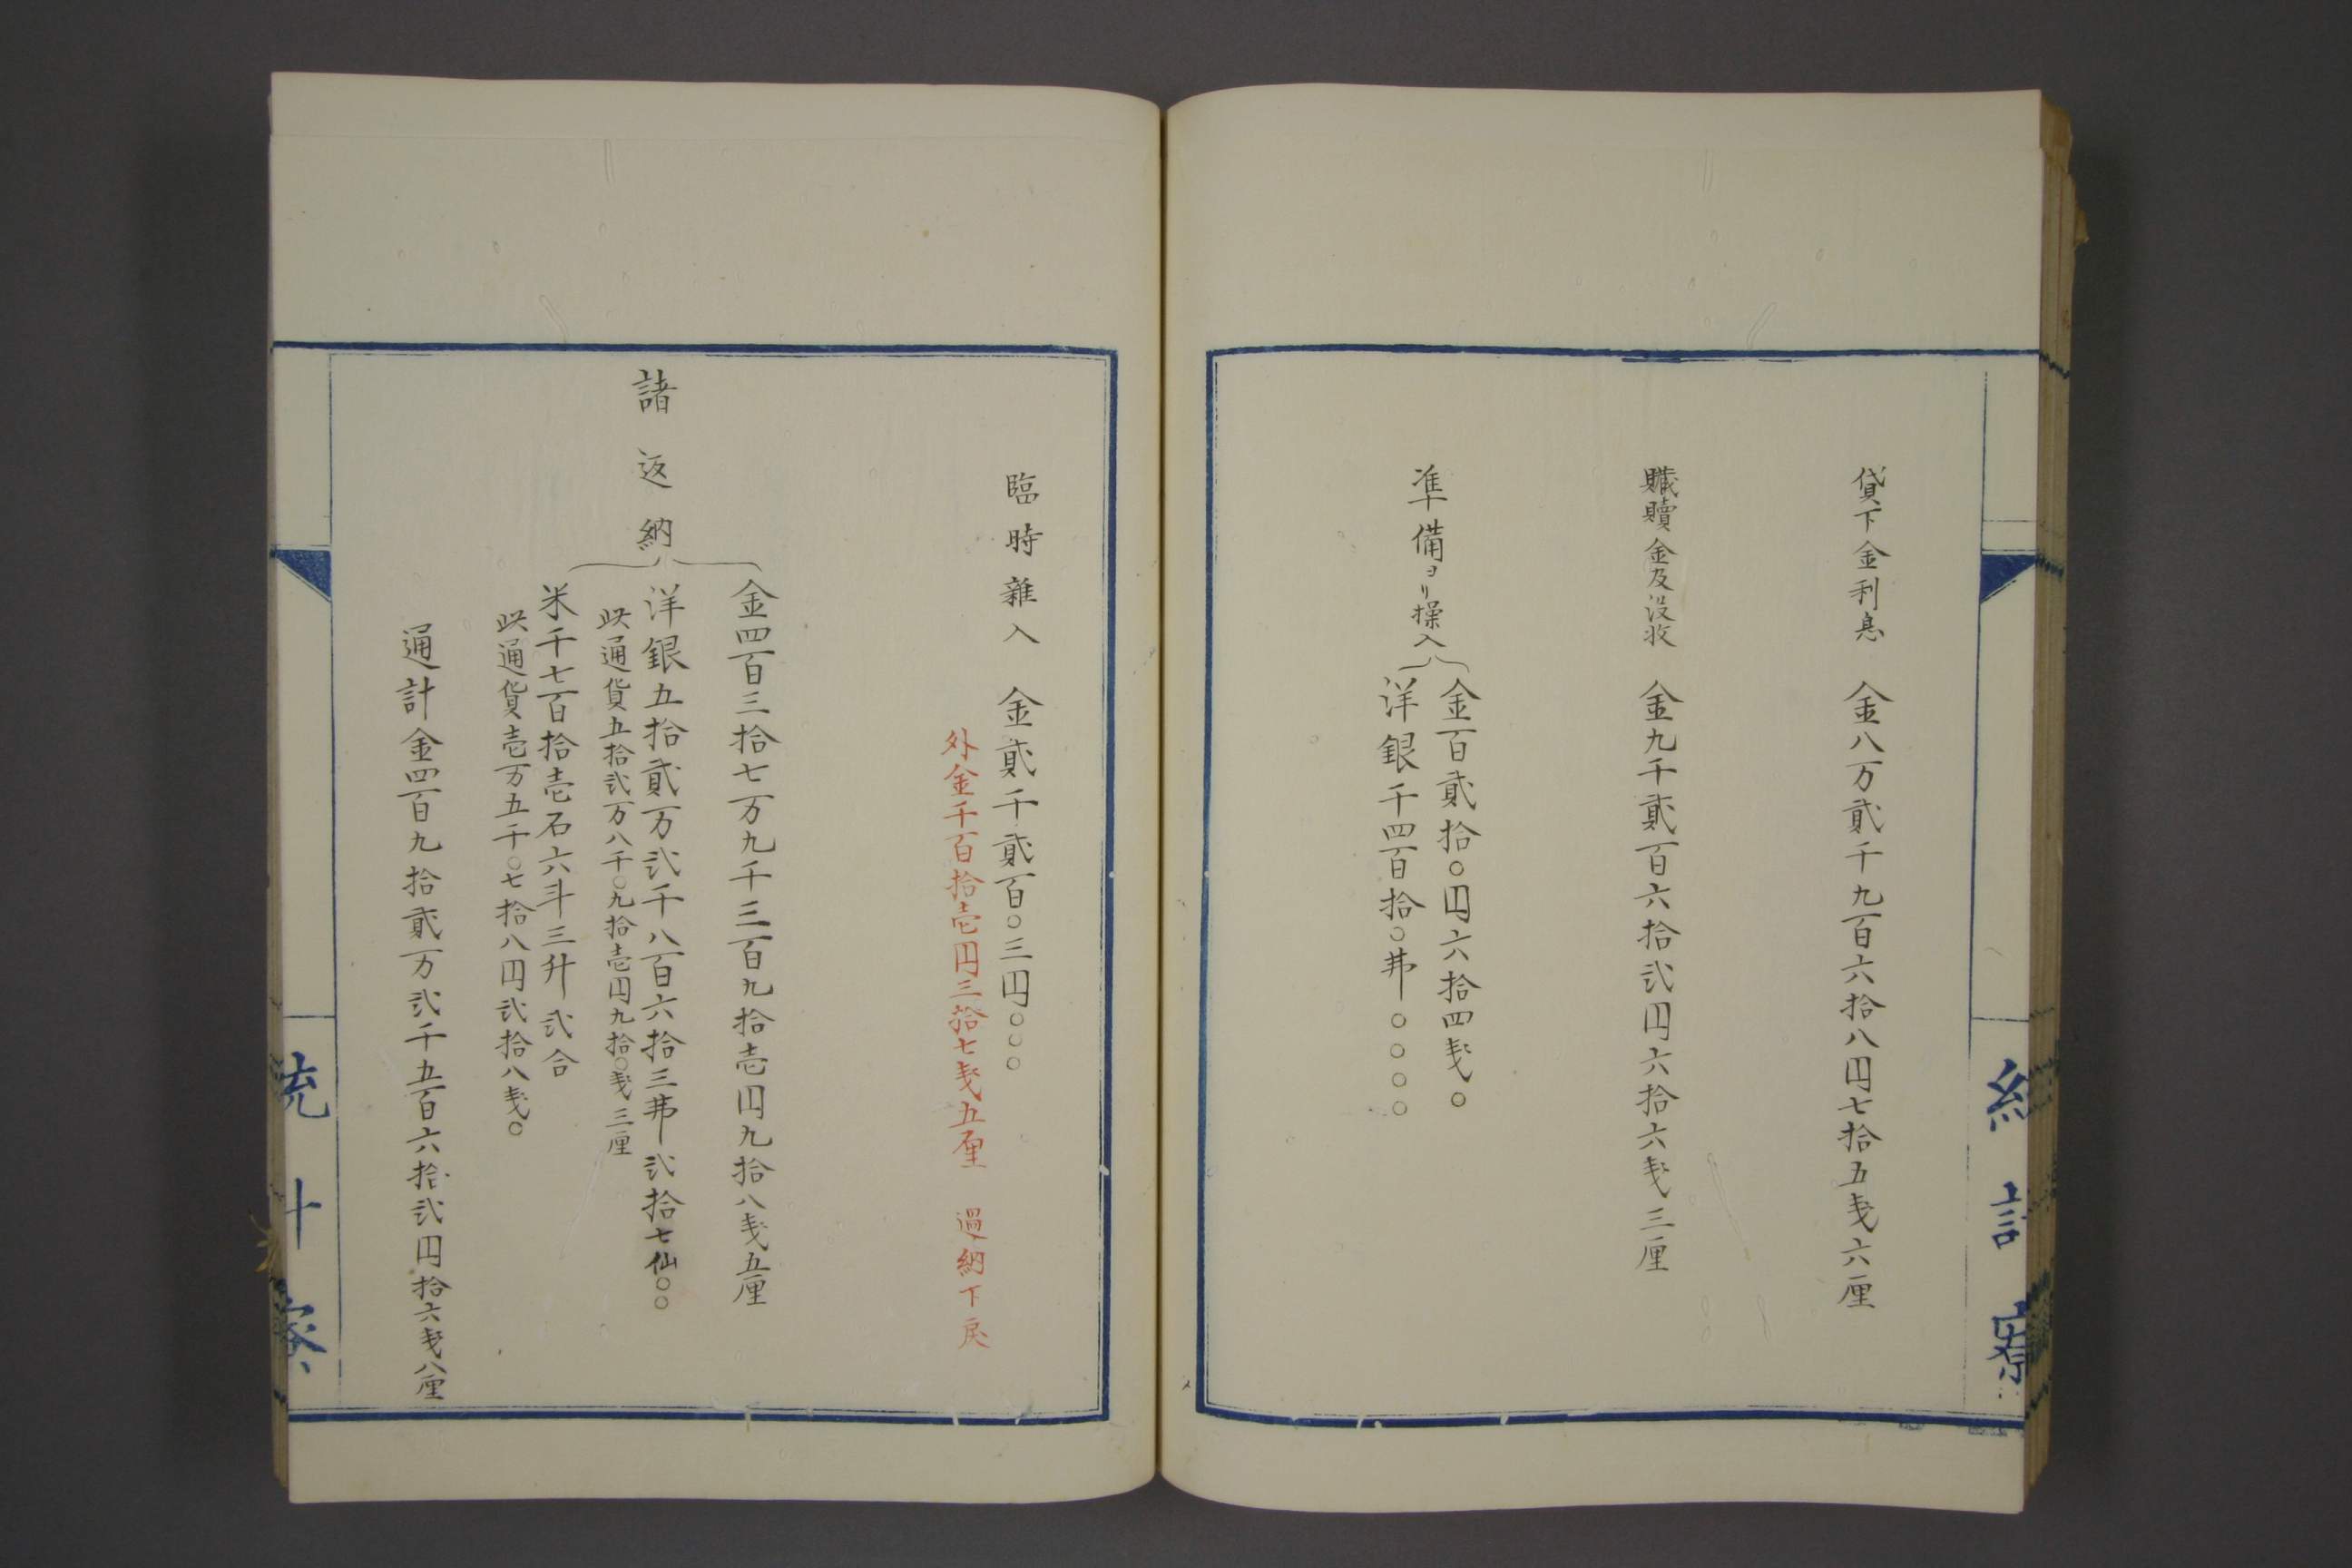 貸下金利息　金八万貳千九百六拾八円七拾五戋六厘
贓贖金及没收　金九千貳百六拾弐円六拾六戋三厘
準備ヨリ操入
金百貳拾〇円六拾四戋〇
洋銀千四百拾〇弗〇〇〇〇
臨時雜入　金貳千貳百〇三円〇〇〇
外金千百拾壱円三拾七戋五厘　過納下戻
諸返納
金四百三拾七万九千三百九拾壱円九拾八戋五厘
洋銀五拾貳万弐千八百六拾三弗弐拾七仙〇〇
此通貨五拾弐万八千〇九拾壱円九拾〇戋三厘
米千七百拾壱石六斗三升弐合
此通貨壱万五千〇七拾八円弐拾八戋〇
通計金四百九拾貳万弐千五百六拾弐円拾六戋八厘